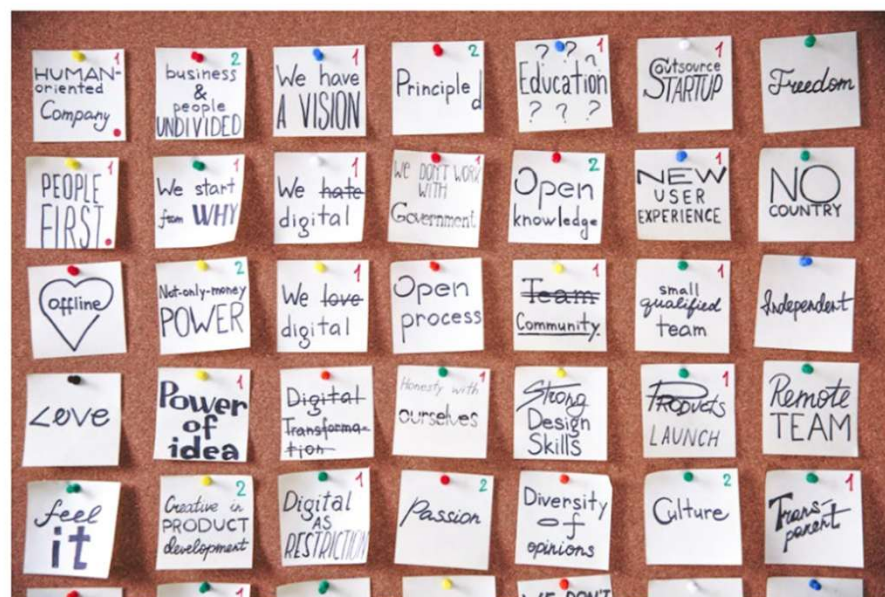 HUMAN- 1
oriented
Company
business 2
&
people
UNDIVIDED
We have 1
A VISION
Principled 2
? ? ? 1
Education
? ? ?
Outsource 1
STARTUP
Freedom
PEOPLE 1
FIRST
We start 1
from WHY
We hate 1
digital
We DON'T WORK 1
WITH
Government
Open 2
knowledge
NEW 1
USER
EXPERIENCE
NO
COUNTRY
Offline
Not-only-money 2
POWER
We love 1
digital
Open
process
Team 1
Community
small 1
qualified
team
Independent
Love
Power 1
of
idea
Digital
Transforma-
tion
Honesty with 1
ourselves
Strong
Design
Skills
PRODUCTS 1
LAUNCH
Remote
TEAM
feel
it
Creative in 2
PRODUCT
development
Digital 1
AS
RESTRICTION
Passion 2
Diversity
of
opinions
Culture 2
Trans- 1
parent
WE DON'T